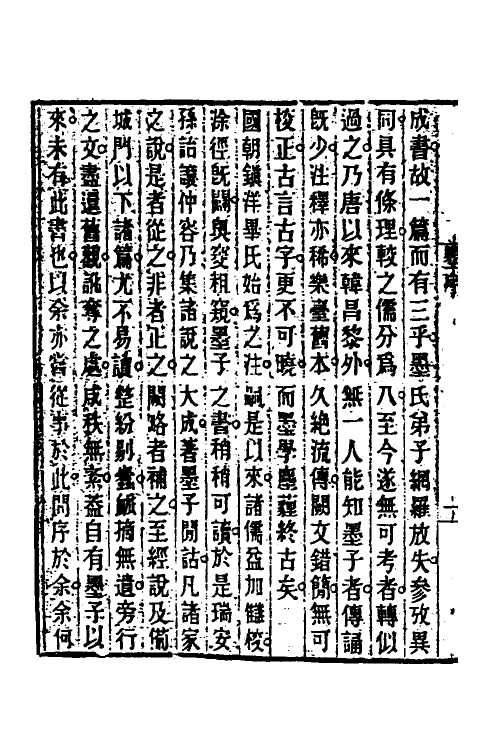 成書故一篇而有三乎墨氏弟子網羅放失參攷異
同具有條理較之儒分爲八至今遂無可考者轉似
過之乃唐以來韓昌黎外無一人能知墨子者傳誦
既少注釋亦稀樂臺舊本久絶流傳闕文錯簡無可
校正古言古字更不可曉而墨學塵薶終古矣
國朝鎭洋畢氏始爲之注嗣是以來諸儒益加讎校
涂徑既闢奧窔粗窺墨子之書稍稍可讀於是瑞安
孫詒讓仲容乃集諸說之大成著墨子閒詁凡諸家
之說是者從之非者正之闕略者補之至經說及備
城門以下諸篇尤不易讀整紛剔蠹䘑摘無遺旁行
之文盡還舊觀訛奪之處咸秩無紊蓋自有墨子以
來未有此書也以余亦嘗從事於此問序於余余何